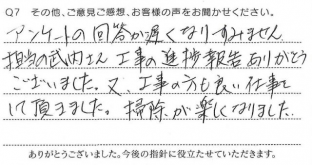 Q7 その他、ご意見ご感想、お客様の声をお聞かせください。
アンケートの回答が遅くなりすみません
担当の武内さん 工事の進捗報告ありがとう
ございました。又、工事の方も良い仕事を
して頂きました。掃除が楽しくなりました。
ありがとうございました。今後の指針に役立たせていただきます。